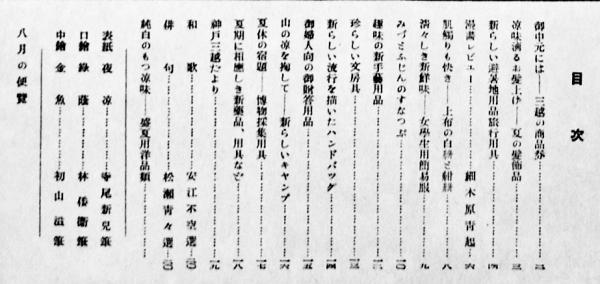 目次
御中元には――三越の商品券……………二
凉味滴るお髮上げ――夏の髮飾品……………三
新らしい避暑地用品旅行用具……………四
漫畫レビュー……………細木原靑起…六
肌觸りも快き――上布の白絣と紺絣……………八
淸々しき新鮮味――女學生用簡易服……………九
みづとふじんのすなつぷ……………一〇
趣味の新手藝用品……………一二
珍らしい文房具……………一三
新らしい流行を描いたハンドバツグ……………一四
御婦人向の御贈答用品……………一五
山の凉を掬して――新らしいキャンプ……………一六
夏休の宿題――博物採集用具……………一七
夏期に相應しき新藥品、用具など……………一八
神戶三越だより……………一九
和歌……………安江不空選…二〇
俳句……………松瀨靑々選…二〇
純白のもつ凉味――盛夏用洋品類
表紙 夜凉……………寺尾新兒筆
口繪 綠蔭……………林倭衞筆
中繪 金魚……………初山滋筆
八月の便覽